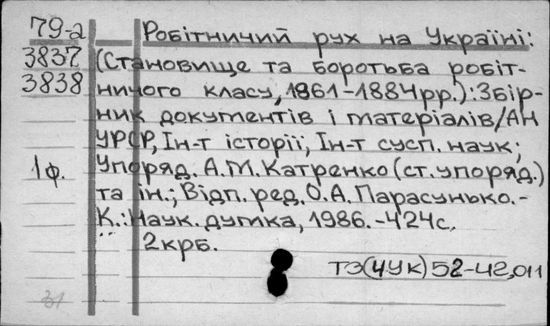 79-а Робітничий рух на Україні:
3837 (Становище та боротьба робіт-
3838 ничого класу, 1861-1884рр.): Збір-
ник документів і матеріалів/АН
УРСР, Ін-т історії; Ін-т сусп. наук;
1ф. Упоряд. А.М. Катренко (ст. упоряд.)
та ін.; Відп. ред. О.А. Парасунько.-
К.: Наук. думка, 1986.-424с.
2крб.
ТЗ(4Ук)52-42,011
31